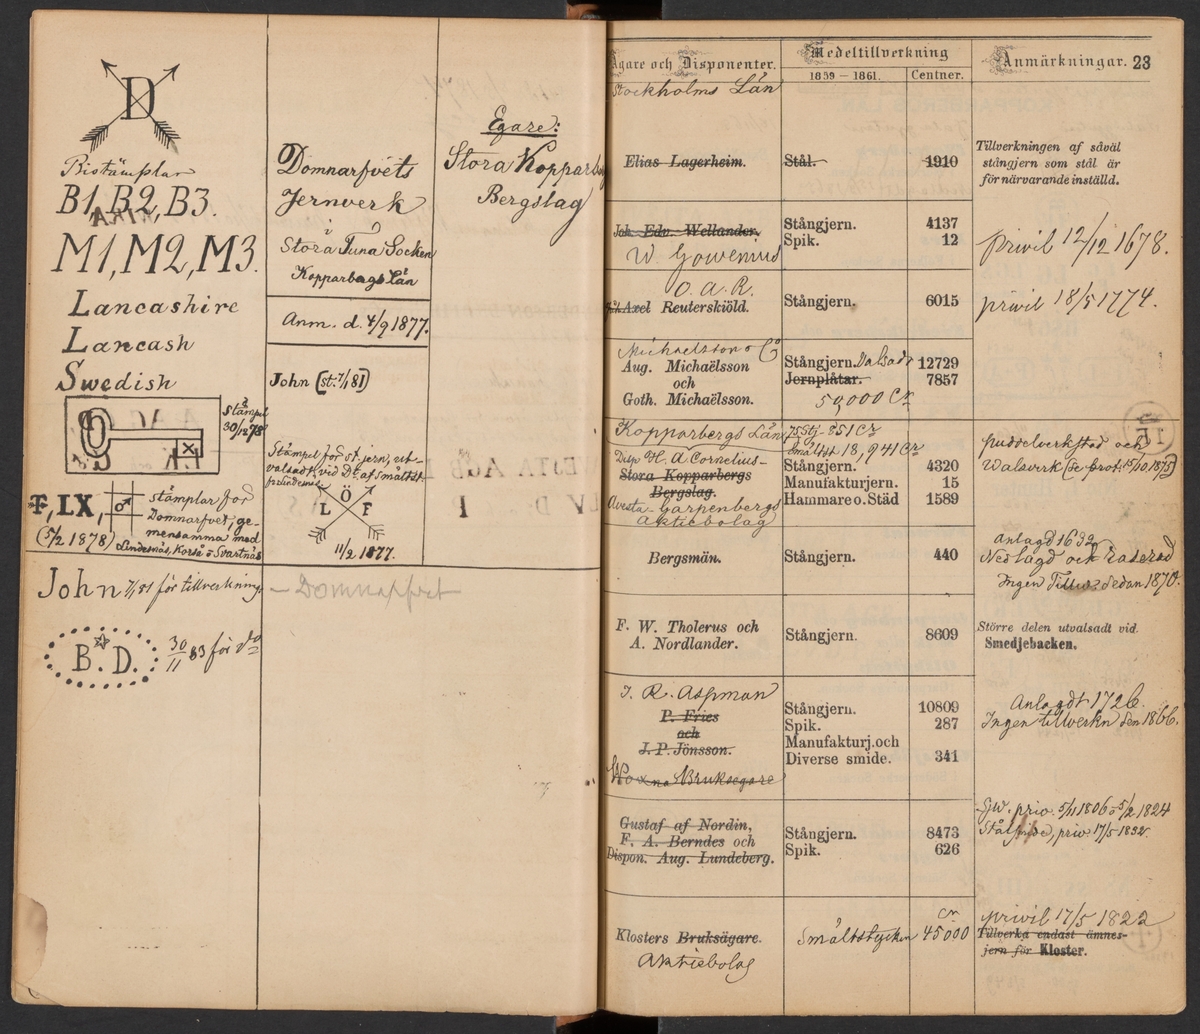 D
Bistämplar
B1, B2, B3.
M1, M2, M3.
Lancashire
Lancash
Swedish
Stämpel
30/12 78
F, LX,
(5/2 1878)
stämplar för
Domnarfvet, ge-
mensamma med
Lindesnäs, Korså o Svartnäs
John 7/1 81 för tillverkning
B. D. 30/11 83 för do
Domnarfvets
Jernverk
i
Stora Tuna Socken
Kopparbergs Län
Anm. d. 4/9 1877.
John (st. 7/1 81)
Stämpel för st.jern, ut-
valsadt vid D. af smältst.
fr Lindesnäs
Ö
L F
11/2 1877.
— Domnarfvet
Egare:
Stora Kopparbergs
Bergslag
Ägare och Disponenter.
Medeltillverkning
1859 — 1861. Centner.
Anmärkningar. 23
Stockholms Län
Elias Lagerheim. Stål. 1910
Tillverkningen af såväl
stångjern som stål är
för närvarande inställd.
Joh. Edv. Wellander. Stångjern. 4137
Spik. 12
W. Gowenius
privil 12/12 1678.
O. A. R.
Axel Reuterskiöld. Stångjern. 6015
privil 18/5 1774.
Michaelsson & Co
Aug. Michaëlsson Stångjern. Dalsad 12729
och Jernplåtar. 7857
Goth. Michaëlsson. 50,000 Cr
Kopparbergs Län
851 Cr
Smältst 18,941 Cr
Disp H. A Cornelius— Stångjern. 4320
Stora Kopparbergs Manufakturjern. 15
Bergslag. Hammare o. Städ 1589
Avesta-Garpenbergs
Aktiebolag
puddelverkstad och
Walsverk (se prot. 15/10 1875)
Bergsmän. Stångjern. 440
Anlagd 1632
Nedlagd och raserad
Ingen Tillv. sedan 1870.
F. W. Tholerus och
A. Nordlander. Stångjern. 8609
Större delen utvalsadt vid
Smedjebacken.
J. R. Aspman
P. Fries Stångjern. 10809
och Spik. 287
J. P. Jönsson. Manufakturj. och
Diverse smide. 341
Woxna Bruksegare
Anlagdt 1726.
Ingen tillverkn sen 1866.
Gustaf af Nordin,
F. A. Berndes och Stångjern. 8473
Dispon. Aug. Lundeberg. Spik. 626
priv. 5/11 1806 o 5/2 1824
priv. 17/5 1832.
Klosters Bruksägare. Smältstycken 45000 Cr
Aktiebolag
privil 17/5 1822
Tillverka endast ämnes-
jern för Kloster.